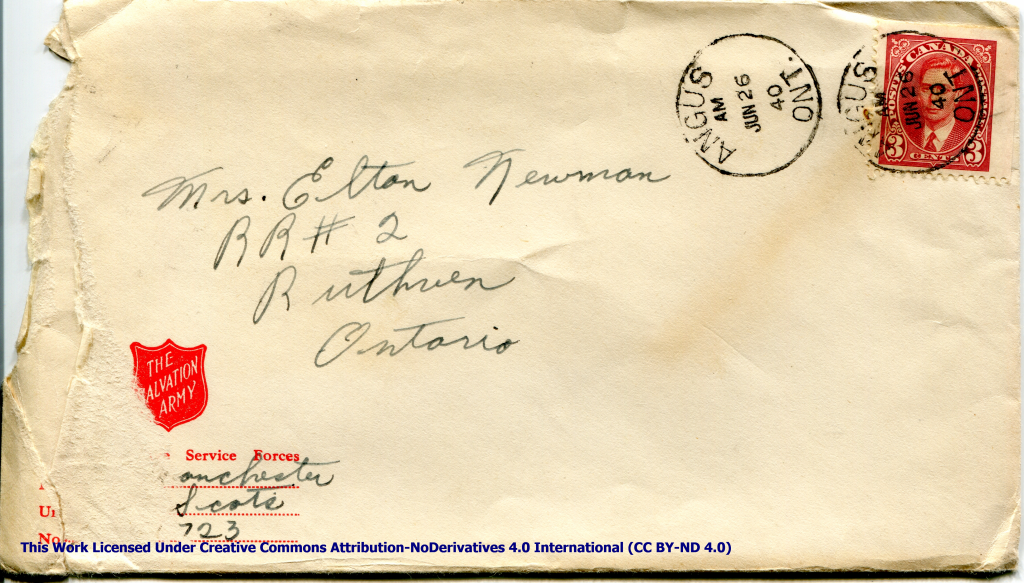 ANGUS
AM
JUN 26
40
ONT.
ANGUS
AM
JUN 26
40
ONT
POSTES CANADA POSTAGE
3 CENTS 3
Mrs. Elton Newman
RR# 2
Ruthven
Ontario
THE
SALVATION
ARMY
Service Forces
onchester
Scots
723
This Work Licensed Under Creative Commons Attribution-NoDerivatives 4.0 International (CC BY-ND 4.0)